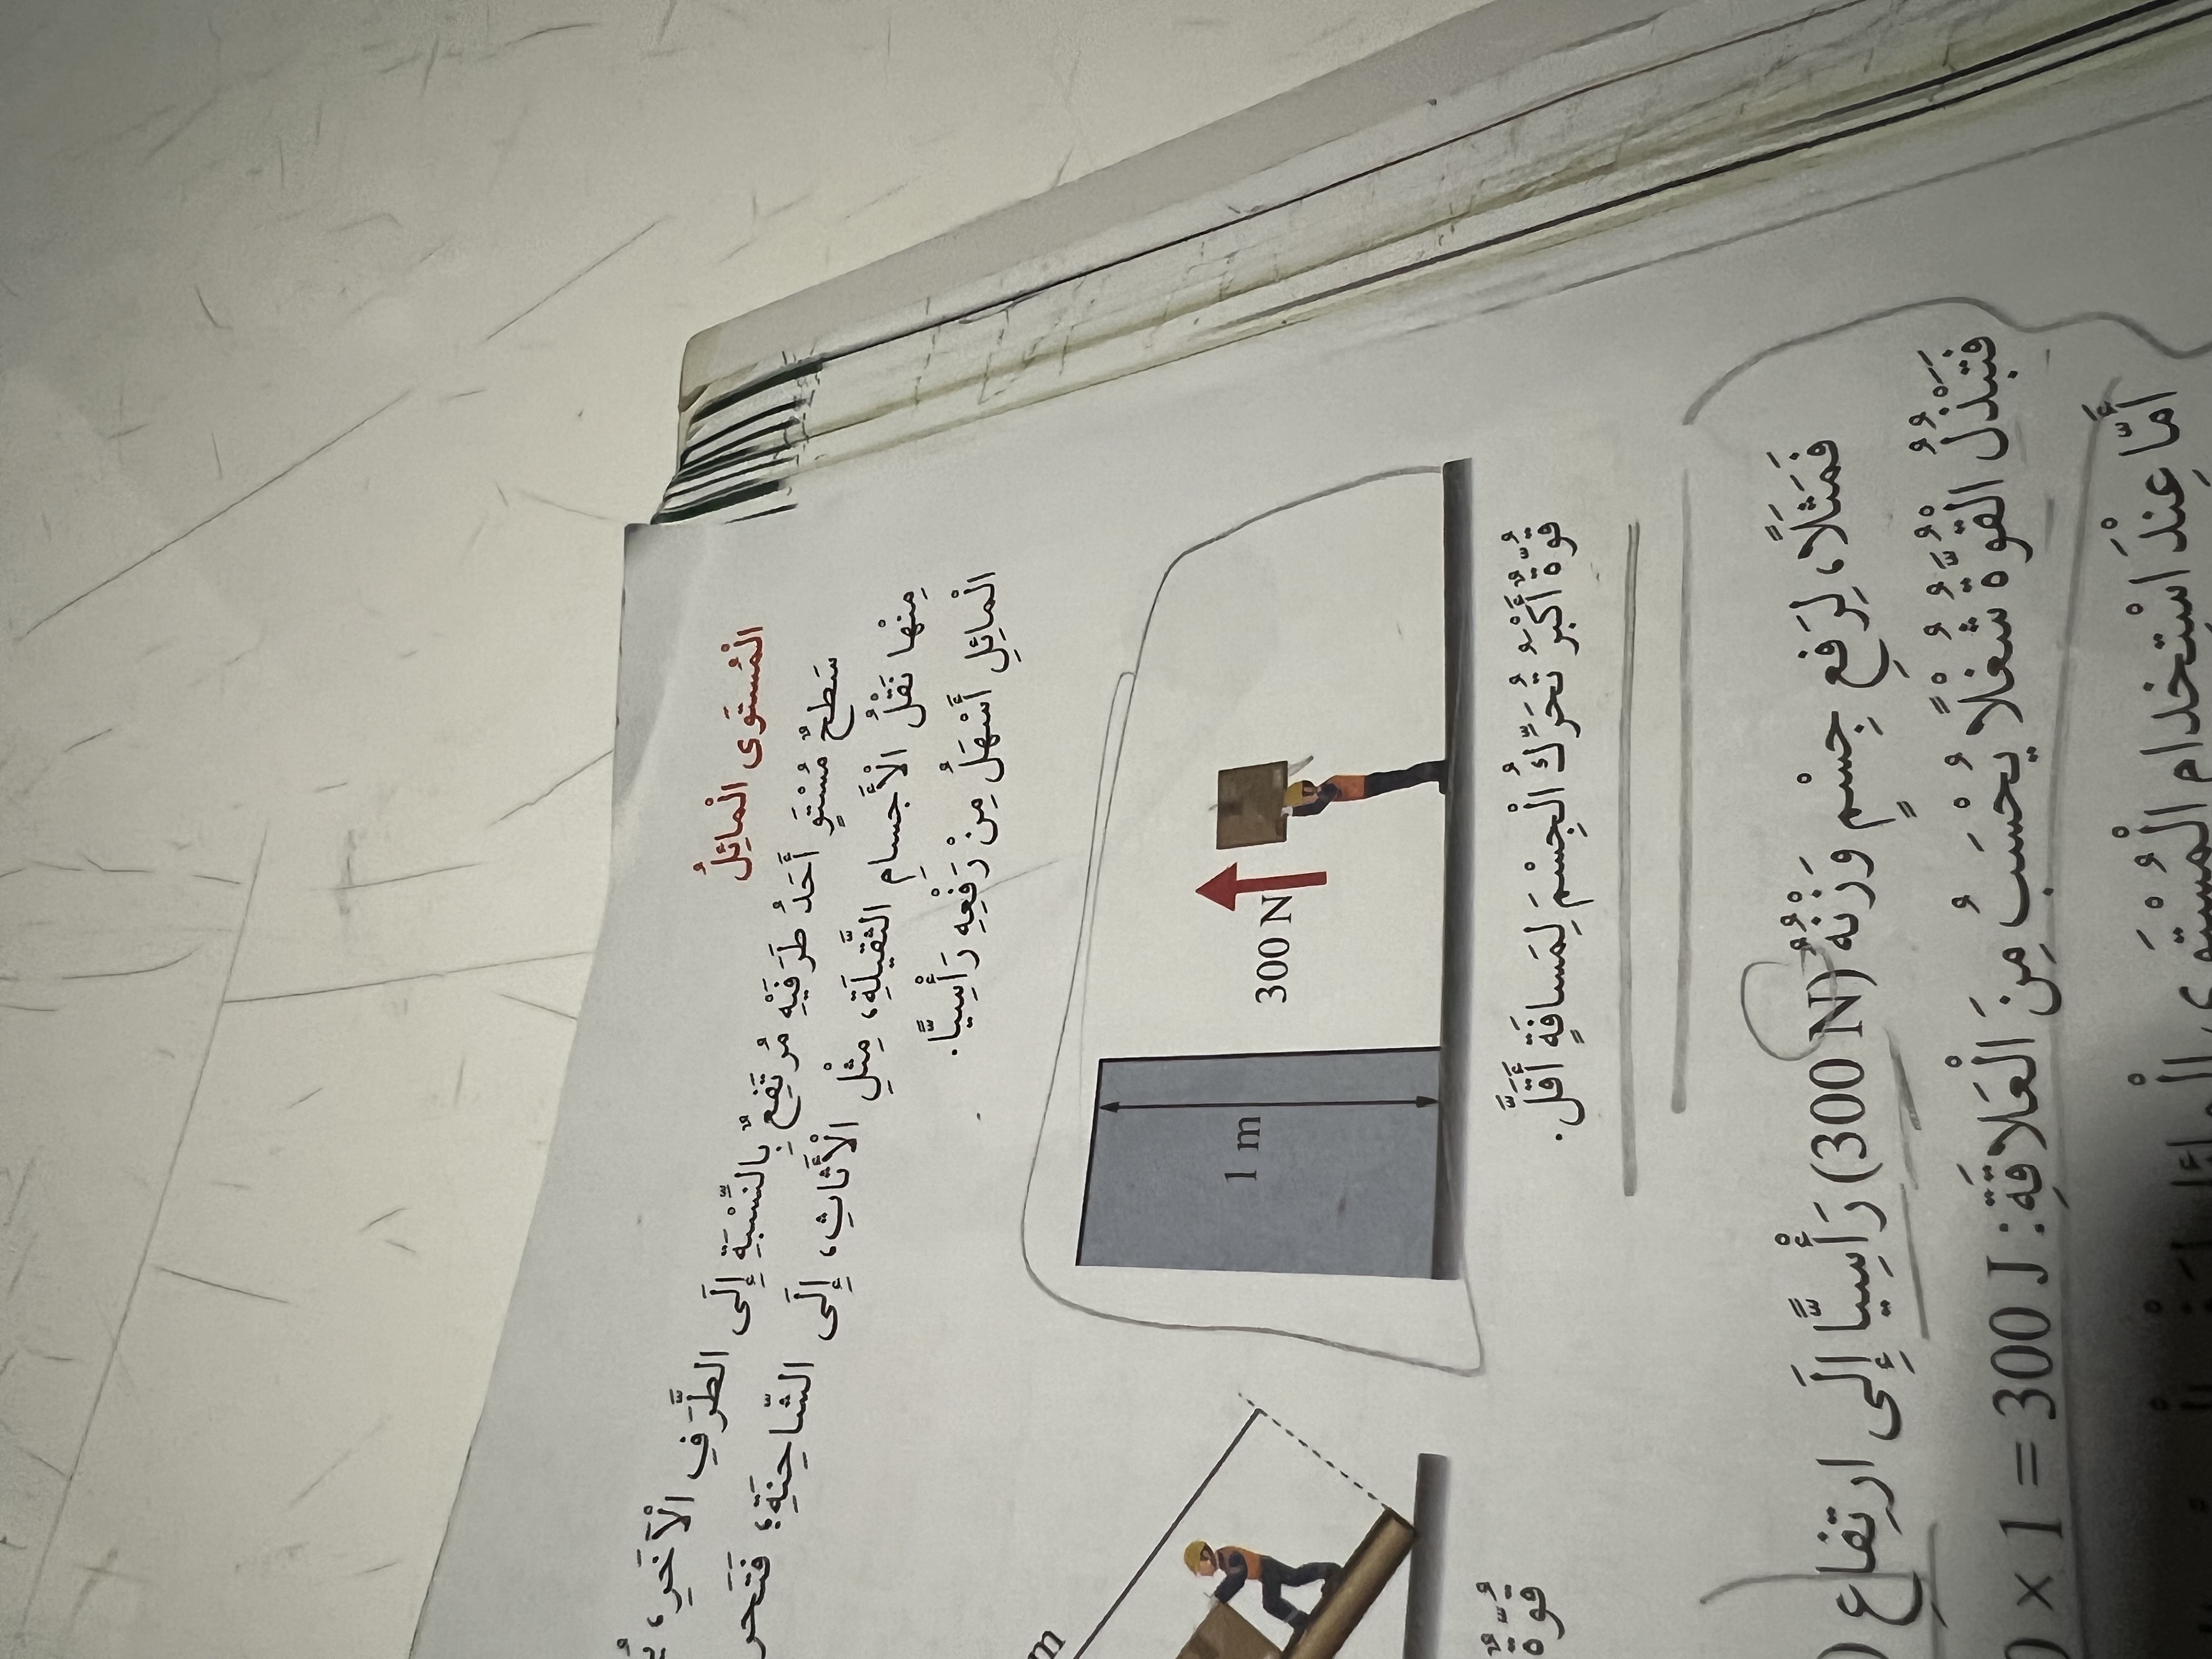 الْمُسْتَوَى الْمائِلُ
سَطحٌ مُسْتَوٍ أَحَدُ طَرَفَيْهِ مُرتَفِعٌ بِالنِّسْبَةِ إِلَى الطَّرَفِ الْآخَرِ،
مِنْها نَقْلُ الْأَجسامِ الثَّقيلَةِ، مِثْلِ الْأَثاثِ، إِلَى الشّاحِنَةِ؛
الْمائِلِ أَسْهَلُ مِنْ رَفْعِهِ رَأْسِيًّا.
300 N
1 m
m
قُوَّةٌ أَكْبَرُ تُحَرِّكُ الْجِسْمَ لِمَسَافَةٍ أَقَلَّ.
قُوَّةٌ
فَمَثَلًا، لِرَفعِ جِسْمٍ وَزْنُهُ (300 N) رَأْسِيًّا إِلَى ارتفاعِ
فَتَبْذُلُ الْقُوَّةُ شُغْلًا يُحْسَبُ مِنَ الْعَلاقَةِ: 300 J = 1 ×
أَمّا عِنْدَ اسْتِخدامِ الْمُسْتَوى الْمائِلِ